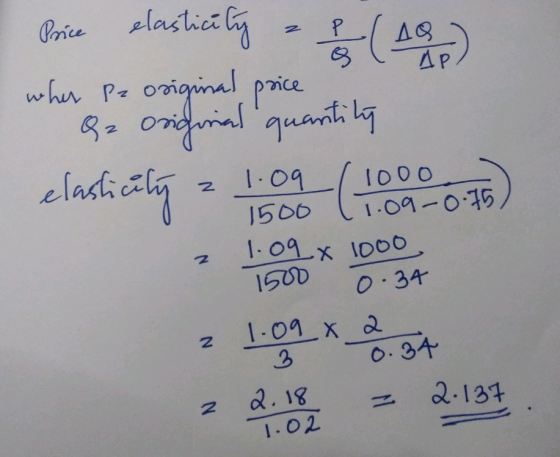 Price elasticity = P/Q (ΔQ/ΔP)
wher P= original price
Q= original quantity
elasticity = 1.09/1500 (1000/1.09-0.75)
= 1.09/1500 × 1000/0.34
= 1.09/3 × 2/0.34
= 2.18/1.02 = 2.137.